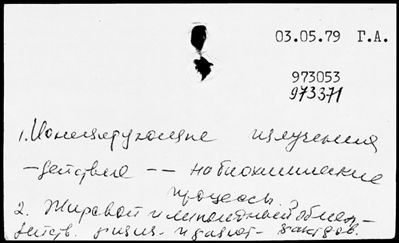 03.05.79 Г.А.
973053
973371
1. Ионизирующие излучения
- действие -- на биохимические
процессы.
2. Жировой и липоидный обмен -
действ. физич. и факторов.